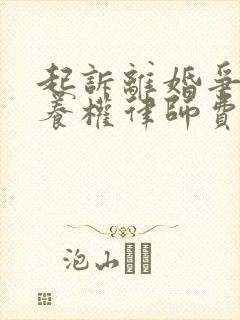 起訴離婚爭
養權律師費
泡山